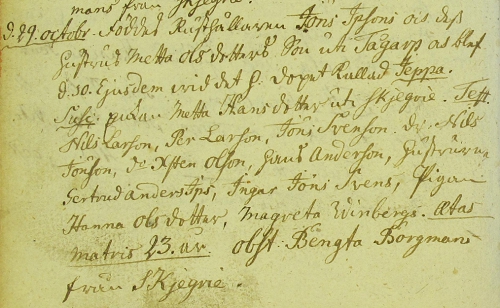 mans från Skjegrie.
d. 29. octobr. Föddes Rusthållaren Jöns Ipsons ois deß
hustrus Metta Ols dotters Son uti Tågarp as blef
d. 30. Ejusdem wid det h. dopet Kallad Jeppa.
Susc. pigan Metta Hans dotter uti Skjegrie. Test.
Nils Larson, Per Larson, Jöns Svenson. Dr. Nils
Jonson, De. Olson, Hans Anderson, hustrurna
Gertrud Anders Ips, Ingar Jöns Svens, Pigan
Hanna Ols dotter, Magreta Winbergs. Ætas
matris 23. år. obst. Bengta Borgman
från Skjegrie.